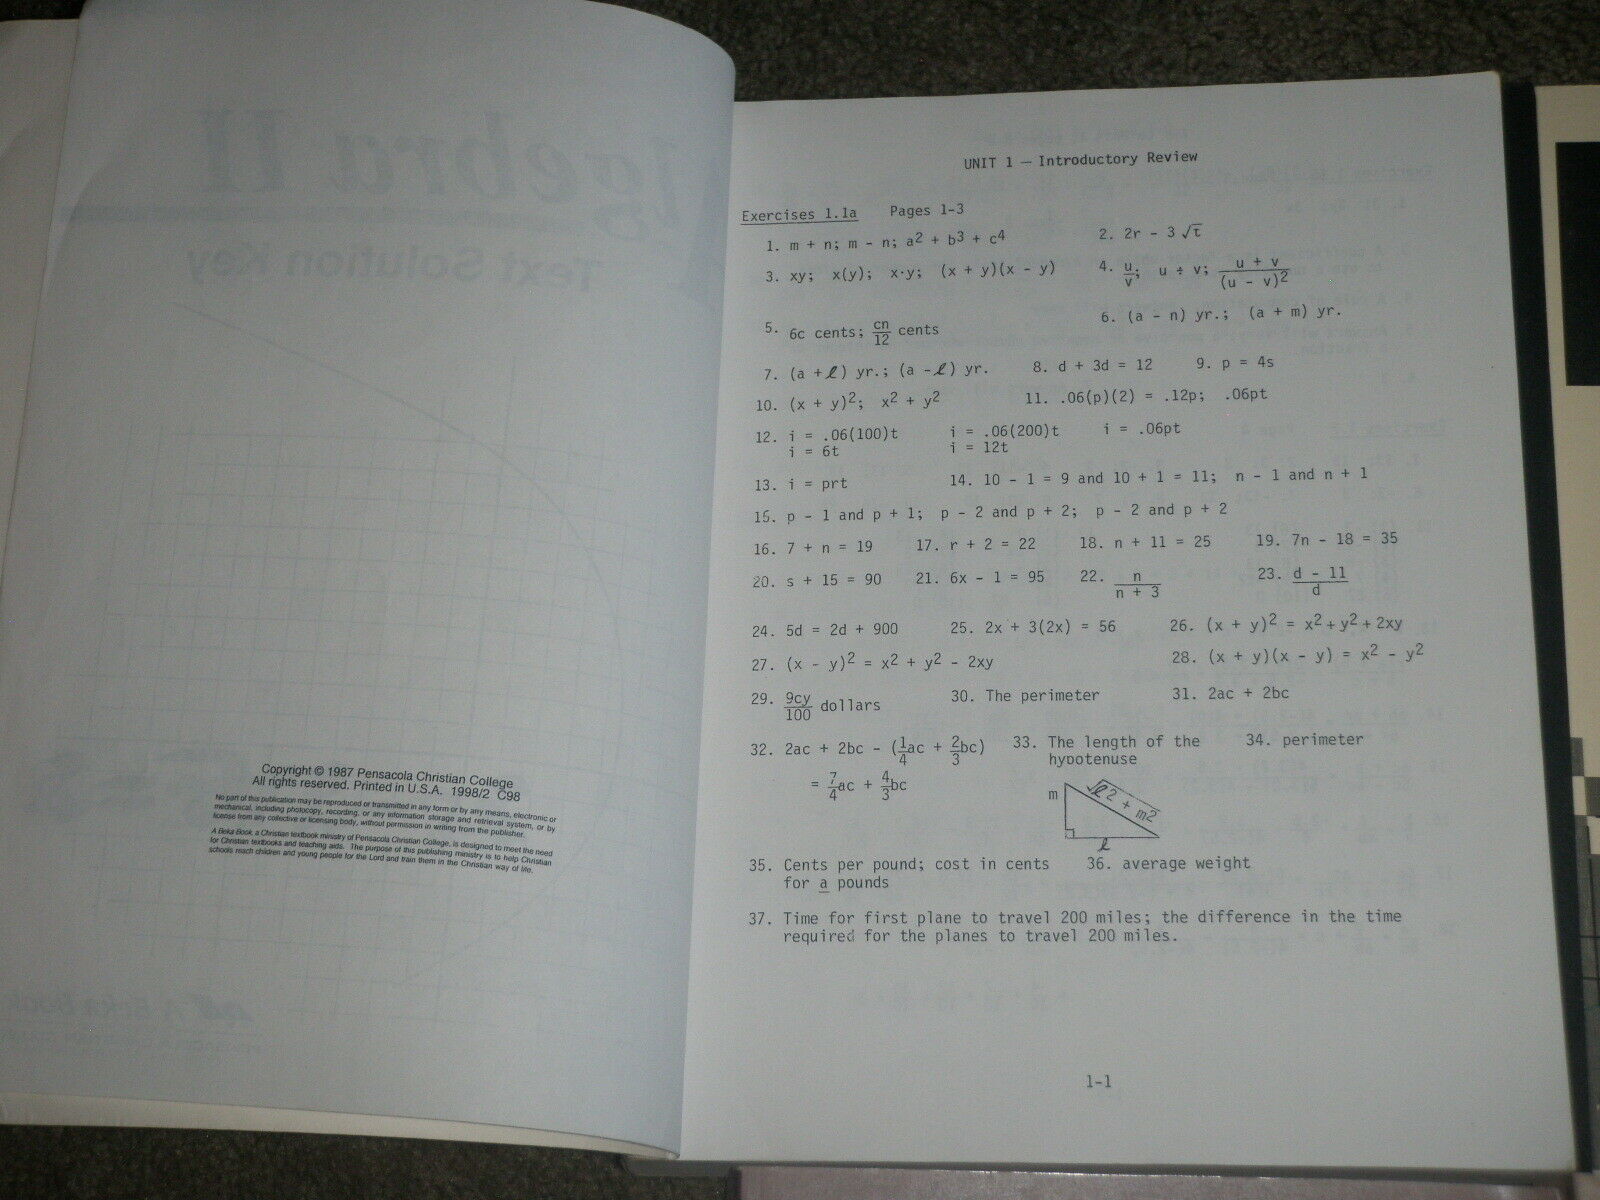 Algebra II
Text Solution Key
Copyright © 1987 Pensacola Christian College
All rights reserved. Printed in U.S.A. 1998/2 C98
No part of this publication may be reproduced or transmitted in any form or by any means, electronic or
mechanical, including photocopy, recording, or any information storage and retrieval system, or by
license from any collective or licensing body, without permission in writing from the publisher.
A Beka Book, a Christian textbook ministry of Pensacola Christian College, is designed to meet the need
for Christian textbooks and teaching aids. The purpose of this publishing ministry is to help Christian
schools reach children and young people for the Lord and train them in the Christian way of life.
UNIT 1 — Introductory Review
Exercises 1.1a Pages 1-3
1. m + n; m - n; a² + b³ + c⁴ 2. 2r - 3 √t
3. xy; x(y); x·y; (x + y)(x - y) 4. u/v; u ÷ v; (u + v)/(u - v)²
5. 6c cents; cn/12 cents 6. (a - n) yr.; (a + m) yr.
7. (a + ℓ) yr.; (a - ℓ) yr. 8. d + 3d = 12 9. p = 4s
10. (x + y)²; x² + y² 11. .06(p)(2) = .12p; .06pt
12. i = .06(100)t i = .06(200)t i = .06pt
i = 6t i = 12t
13. i = prt 14. 10 - 1 = 9 and 10 + 1 = 11; n - 1 and n + 1
15. p - 1 and p + 1; p - 2 and p + 2; p - 2 and p + 2
16. 7 + n = 19 17. r + 2 = 22 18. n + 11 = 25 19. 7n - 18 = 35
20. s + 15 = 90 21. 6x - 1 = 95 22. n/(n + 3) 23. (d - 11)/d
24. 5d = 2d + 900 25. 2x + 3(2x) = 56 26. (x + y)² = x² + y² + 2xy
27. (x - y)² = x² + y² - 2xy 28. (x + y)(x - y) = x² - y²
29. 9cy/100 dollars 30. The perimeter 31. 2ac + 2bc
32. 2ac + 2bc - (1/4ac + 2/3bc) 33. The length of the 34. perimeter
hypotenuse
= 7/4ac + 4/3bc
m √ℓ² + m²
ℓ
35. Cents per pound; cost in cents 36. average weight
for a pounds
37. Time for first plane to travel 200 miles; the difference in the time
required for the planes to travel 200 miles.
1-1